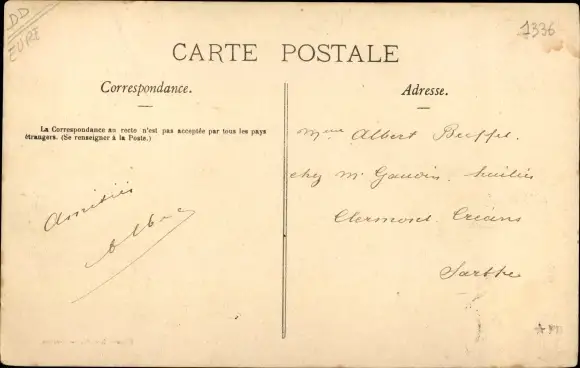 DD
EURE
1336
CARTE POSTALE
Correspondance.
La Correspondance au recto n'est pas acceptée par tous les pays
étrangers. (Se renseigner à la Poste.)
Amitiés
Adresse.
Mme Albert
chez Mr Gaudin
Clermont Créans
Sarthe